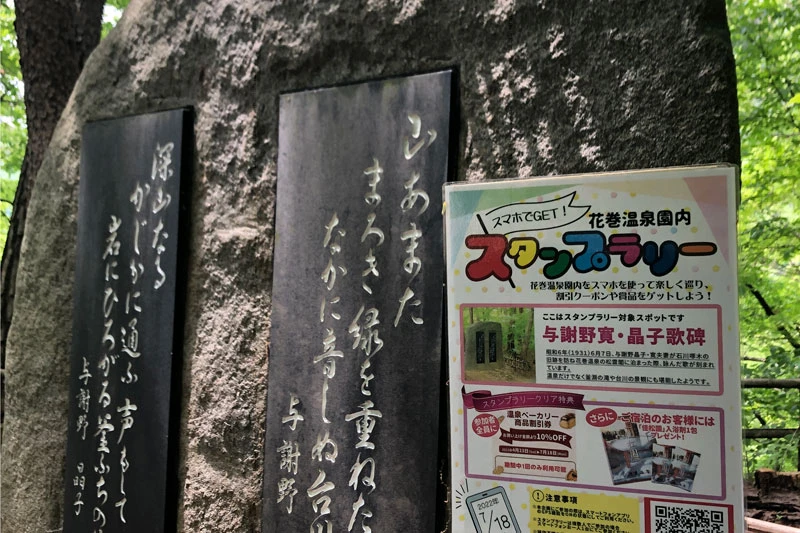 山あまた
まろき緑を重ねた
なかに音しぬ台
与謝野
深山なる
かじかに通ふ声もして
岩にひろがる釜ふちの
与謝野 晶子
スマホでGET!
花巻温泉園内
スタンプラリー
花巻温泉園内をスマホを使って楽しく巡り、
割引クーポンや賞品をゲットしよう!
ここはスタンプラリー対象スポットです
与謝野寛・晶子歌碑
昭和6年(1931)6月7日、与謝野晶子・寛夫妻が石川啄木の
旧跡を訪ね花巻温泉の松雲閣に泊まった際、詠んだ歌が刻まれ
ています。
温泉だけでなく釜淵の滝や台川の景観にも堪能したようです。
スタンプラリークリア特典
参加者
全員に
温泉ベーカリー
商品割引券
お買い上げ金額より10%OFF
期間中1回のみ利用可能
さらに
ご宿泊のお客様には
「佳松園」入浴剤1包
プレゼント!
注意事項
2022年
7/18